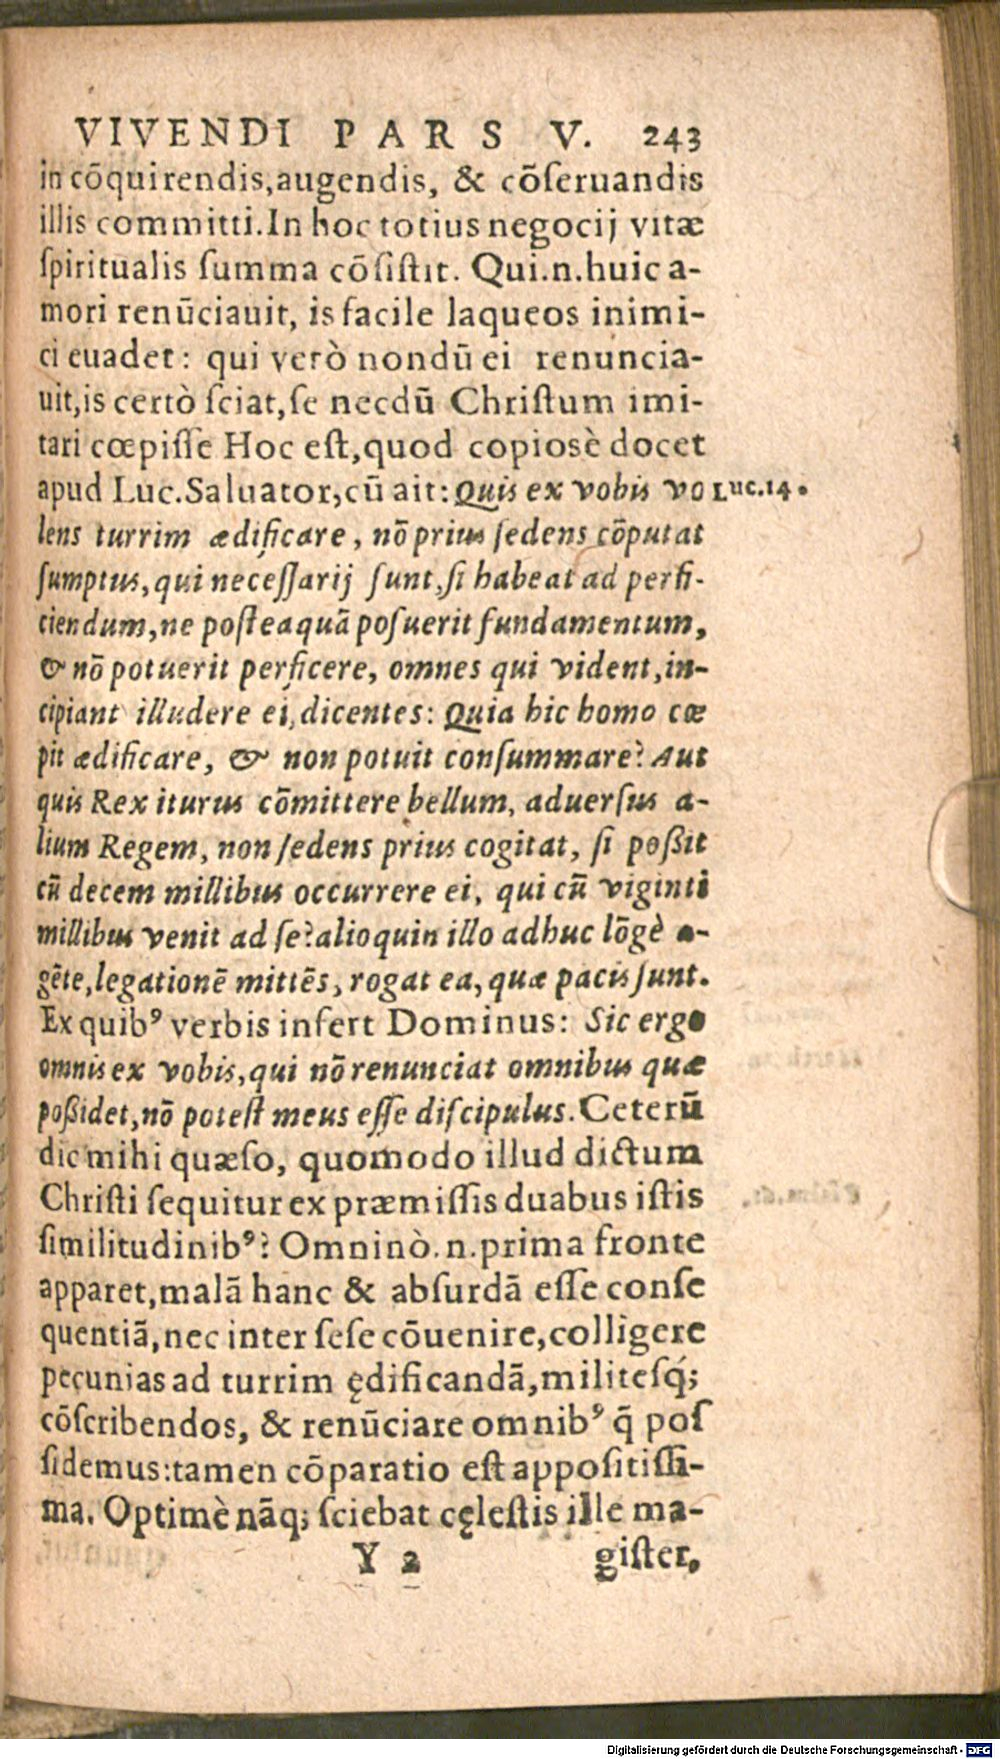 VIVENDI PARS V. 243
in cōquirendis, augendis, & cōſeruandis
illis committi. In hoc totius negocij vitæ
ſpiritualis ſumma cōſiſtit. Qui.n.huic a-
mori renūciauit, is facile laqueos inimi-
ci euadet: qui verò nondū ei renuncia-
uit, is certò ſciat, ſe necdū Chriſtum imi-
tari cœpiſſe Hoc eſt, quod copiosè docet
apud Luc. Saluator, cū ait: Quis ex vobis vo Luc.14.
lens turrim ædificare, nō prius ſedens cōputat
ſumptus, qui neceſſarij ſunt, ſi habeat ad perfi-
ciendum, ne poſteaquā poſuerit fundamentum,
& nō potuerit perficere, omnes qui vident, in-
cipiant illudere ei, dicentes: Quia hic homo cœ
pit ædificare, & non potuit conſummare? Aut
quis Rex iturus cōmittere bellum, aduerſus a-
lium Regem, non ſedens prius cogitat, ſi poßit
cū decem millibus occurrere ei, qui cū viginti
millibus venit ad ſe? alioquin illo adhuc lōgè a-
gēte, legationē mittēs, rogat ea, quæ pacis ſunt.
Ex quibꝰ verbis infert Dominus: Sic ergo
omnis ex vobis, qui nō renunciat omnibus quæ
poßidet, nō poteſt meus eſſe diſcipulus. Ceterū
dic mihi quæſo, quomodo illud dictum
Chriſti ſequitur ex præmiſſis duabus iſtis
ſimilitudinibꝰ? Omninò.n.prima fronte
apparet, malā hanc & abſurdā eſſe conſe
quentiā, nec inter ſeſe cōuenire, colligere
pecunias ad turrim ędificandā, militeſq́;
cōſcribendos, & renūciare omnibꝰ q̄ poſ
ſidemus: tamen cōparatio eſt appoſitiſſi-
ma. Optimè nāq; ſciebat cęleſtis ille ma-
Y 2 giſter,
Digitalisierung gefördert durch die Deutsche Forschungsgemeinschaft - DFG